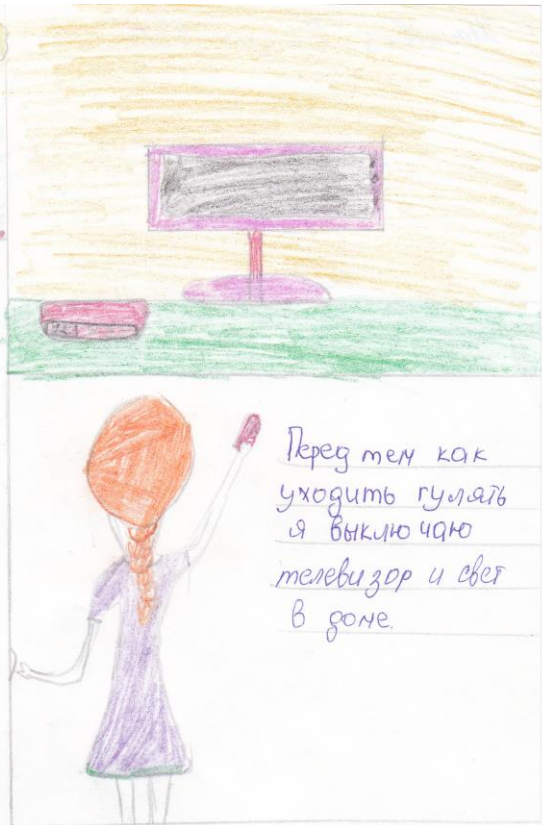 Перед тем как
уходить гулять
я выключаю
телевизор и свет
в доме.